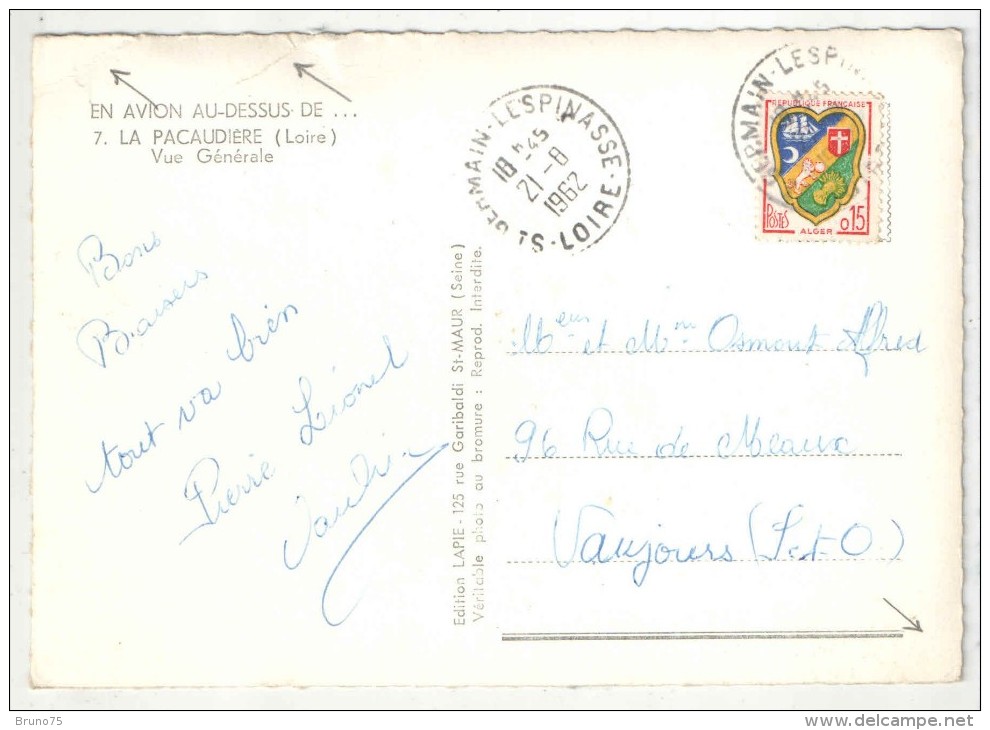 EN AVION AU-DESSUS DE ...
7. LA PACAUDIÈRE (Loire)
Vue Générale
Bons
Baisers
tout va bien
Pierre Lionel
GERMAIN-LESPINASSE
18H45
21-8
1962
LOIRE
ERMAIN-LESPIN
REPUBLIQUE FRANÇAISE
POSTES
ALGER
0,15
Edition LAPIE - 125 rue Garibaldi St-MAUR (Seine)
Véritable photo au bromure : Reprod. Interdite.
et Mme Osmont Alfred
96 Rue de Meaux
Vaujours (S. et. O.)
Bruno75
www.delcampe.net